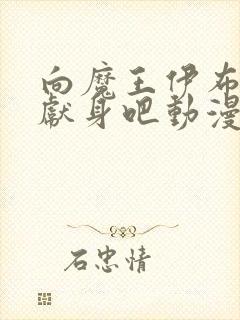 向魔王伊布
獻身吧動漫
石忠情